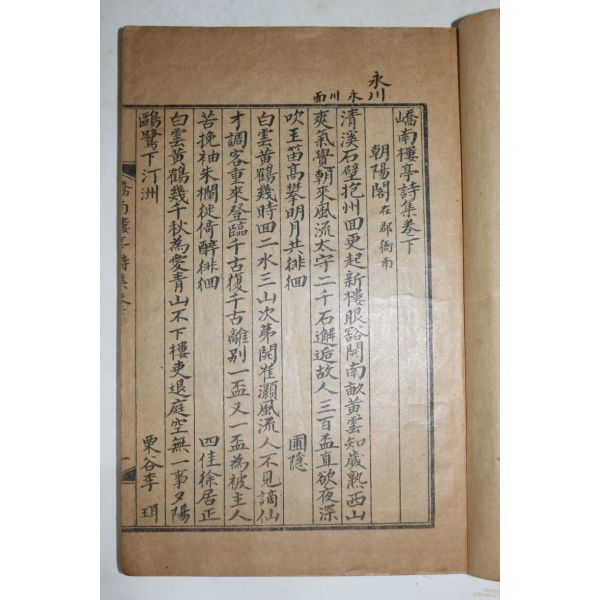 永川
永川面
嶠南樓亭詩集卷下
朝陽閣 在郡衙南
清溪石壁抱州回更起新樓眼豁開南畝黃雲知歲熟西山
爽氣覺朝來風流太守二千石邂逅故人三百盃直欲夜深
吹玉笛高攀明月共徘徊 圃隱
白雲黃鶴幾時回二水三山次第開崔灝風流人不見謫仙
才調客重來登臨千古復千古離别一盃又一盃為被主人
苦挽袖朱欄徙倚醉徘徊 四佳徐居正
白雲黃鶴幾千秋為愛青山不下樓吏退庭空無一事夕陽
鷗鷺下汀洲 栗谷李珥